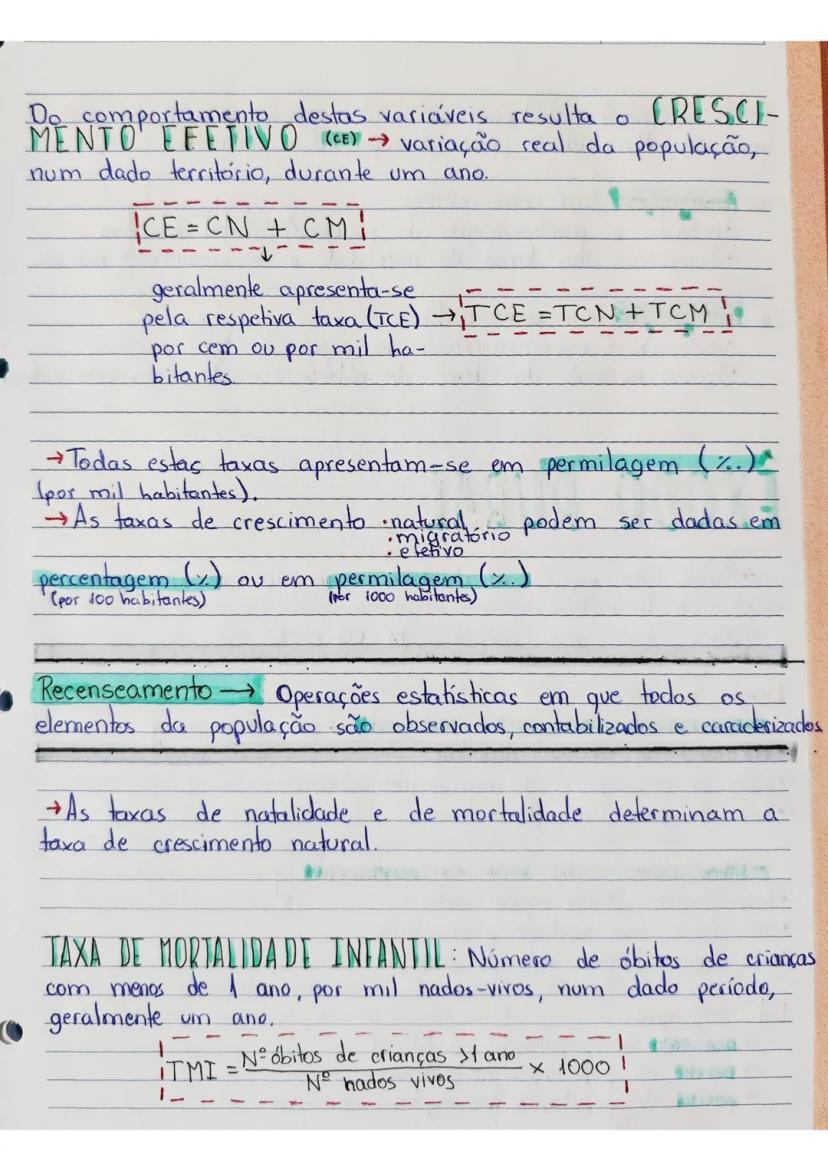 Do comportamento destas variáveis resulta o CRESCI-
MENTO EFETIVO (CE) → variação real da população,
num dado território, durante um ano.
CE = CN + CM
↓
geralmente apresenta-se
pela respetiva taxa (TCE) → TCE = TCN + TCM
por cem ou por mil ha-
bitantes.
→ Todas estas taxas apresentam-se em permilagem (%.)
(por mil habitantes).
→ As taxas de crescimento • natural podem ser dadas em
• migratório
• efetivo
percentagem (%) ou em permilagem (%.)
(por 100 habitantes) (por 1000 habitantes)
Recenseamento → Operações estatísticas em que todos os
elementos da população são observados, contabilizados e caracterizados
→ As taxas de natalidade e de mortalidade determinam a
taxa de crescimento natural.
TAXA DE MORTALIDADE INFANTIL: Número de óbitos de crianças
com menos de 1 ano, por mil nados-vivos, num dado período,
geralmente um ano.
TMI = Nº óbitos de crianças >1 ano × 1000
Nº nados vivos